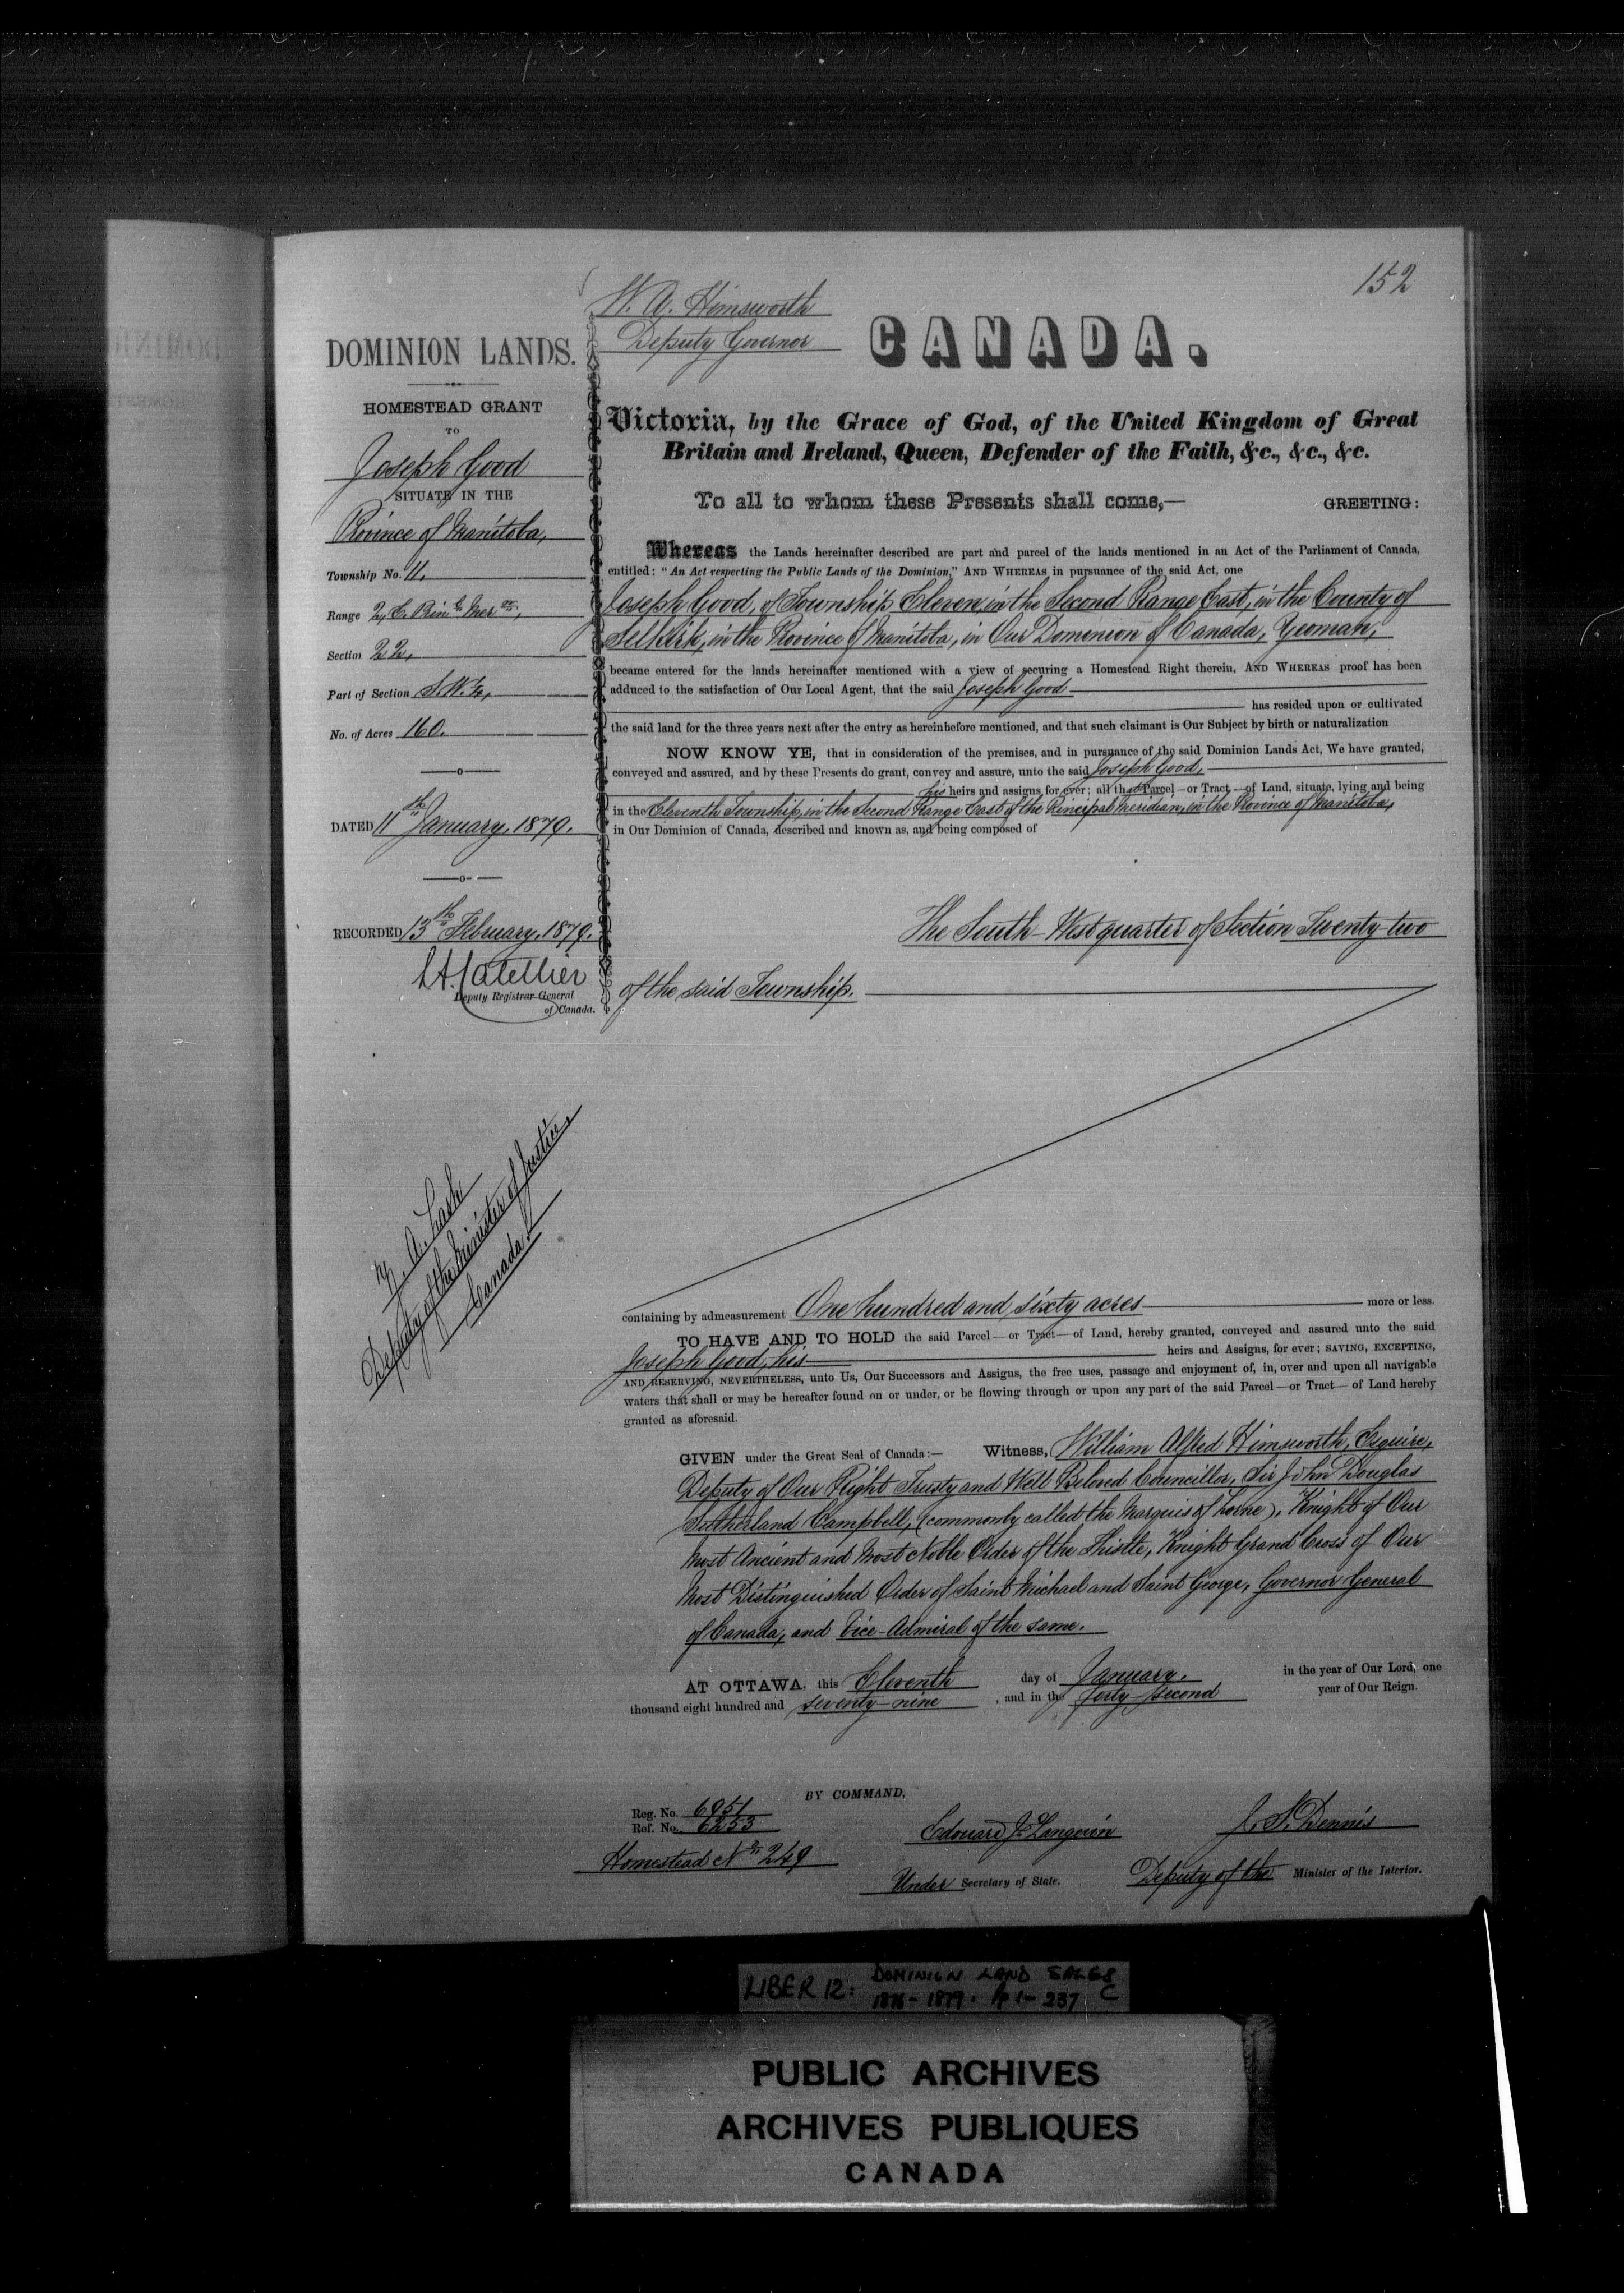 152
W. A. Himsworth
Deputy Governor
CANADA.
DOMINION LANDS.
HOMESTEAD GRANT
TO
Joseph Good
SITUATE IN THE
Province of Manitoba,
Township No. 11,
Range 2, E. Prin l Mer an,
Section 22,
Part of Section S. W. ¼,
No. of Acres 160.
DATED 11th January, 1879.
RECORDED 13th February, 1879.
L. A. Catellier
Deputy Registrar General
of Canada.
Z. A. Lash
Deputy of the Minister of Justice,
Canada.
Victoria, by the Grace of God, of the United Kingdom of Great
Britain and Ireland, Queen, Defender of the Faith, &c., &c., &c.
To all to whom these Presents shall come,— GREETING:
Whereas the Lands hereinafter described are part and parcel of the lands mentioned in an Act of the Parliament of Canada,
entitled: "An Act respecting the Public Lands of the Dominion," AND WHEREAS in pursuance of the said Act, one
Joseph Good, of Township Eleven, in the Second Range East, in the County of
Selkirk, in the Province of Manitoba, in Our Dominion of Canada, Yeoman,
became entered for the lands hereinafter mentioned with a view of securing a Homestead Right therein, AND WHEREAS proof has been
adduced to the satisfaction of Our Local Agent, that the said Joseph Good
has resided upon or cultivated
the said land for the three years next after the entry as hereinbefore mentioned, and that such claimant is Our Subject by birth or naturalization
NOW KNOW YE, that in consideration of the premises, and in pursuance of the said Dominion Lands Act, We have granted,
conveyed and assured, and by these Presents do grant, convey and assure, unto the said Joseph Good,
his heirs and assigns for ever; all that Parcel—or Tract—of Land, situate, lying and being
in the Eleventh Township, in the Second Range East of the Principal Meridian, in the Province of Manitoba,
in Our Dominion of Canada, described and known as, and being composed of
The South-West quarter of Section Twenty-two
of the said Township.
containing by admeasurement One hundred and sixty acres more or less.
TO HAVE AND TO HOLD the said Parcel—or Tract—of Land, hereby granted, conveyed and assured unto the said
Joseph Good, his heirs and Assigns, for ever; SAVING, EXCEPTING,
AND RESERVING, NEVERTHELESS, unto Us, Our Successors and Assigns, the free uses, passage and enjoyment of, in, over and upon all navigable
waters that shall or may be hereafter found on or under, or be flowing through or upon any part of the said Parcel—or Tract—of Land hereby
granted as aforesaid.
GIVEN under the Great Seal of Canada:— Witness, William Alfred Himsworth, Esquire,
Deputy of Our Right Trusty and Well Beloved Councillor, Sir John Douglas
Sutherland Campbell, (commonly called the Marquis of Lorne), Knight of Our
Most Ancient and Most Noble Order of the Thistle, Knight Grand Cross of Our
Most Distinguished Order of Saint Michael and Saint George, Governor General
of Canada, and Vice-Admiral of the same.
AT OTTAWA, this Eleventh day of January. in the year of Our Lord, one
thousand eight hundred and seventy-nine, and in the forty-second year of Our Reign.
BY COMMAND,
Reg. No. 6951
Ref. No. 6253
Homestead No. 249
Edouard J. Langevin
Under Secretary of State.
J. S. Dennis
Deputy of the Minister of the Interior.
LIBER 12: DOMINION LAND SALES
1876-1879. Pp 1-237 C
PUBLIC ARCHIVES
ARCHIVES PUBLIQUES
CANADA